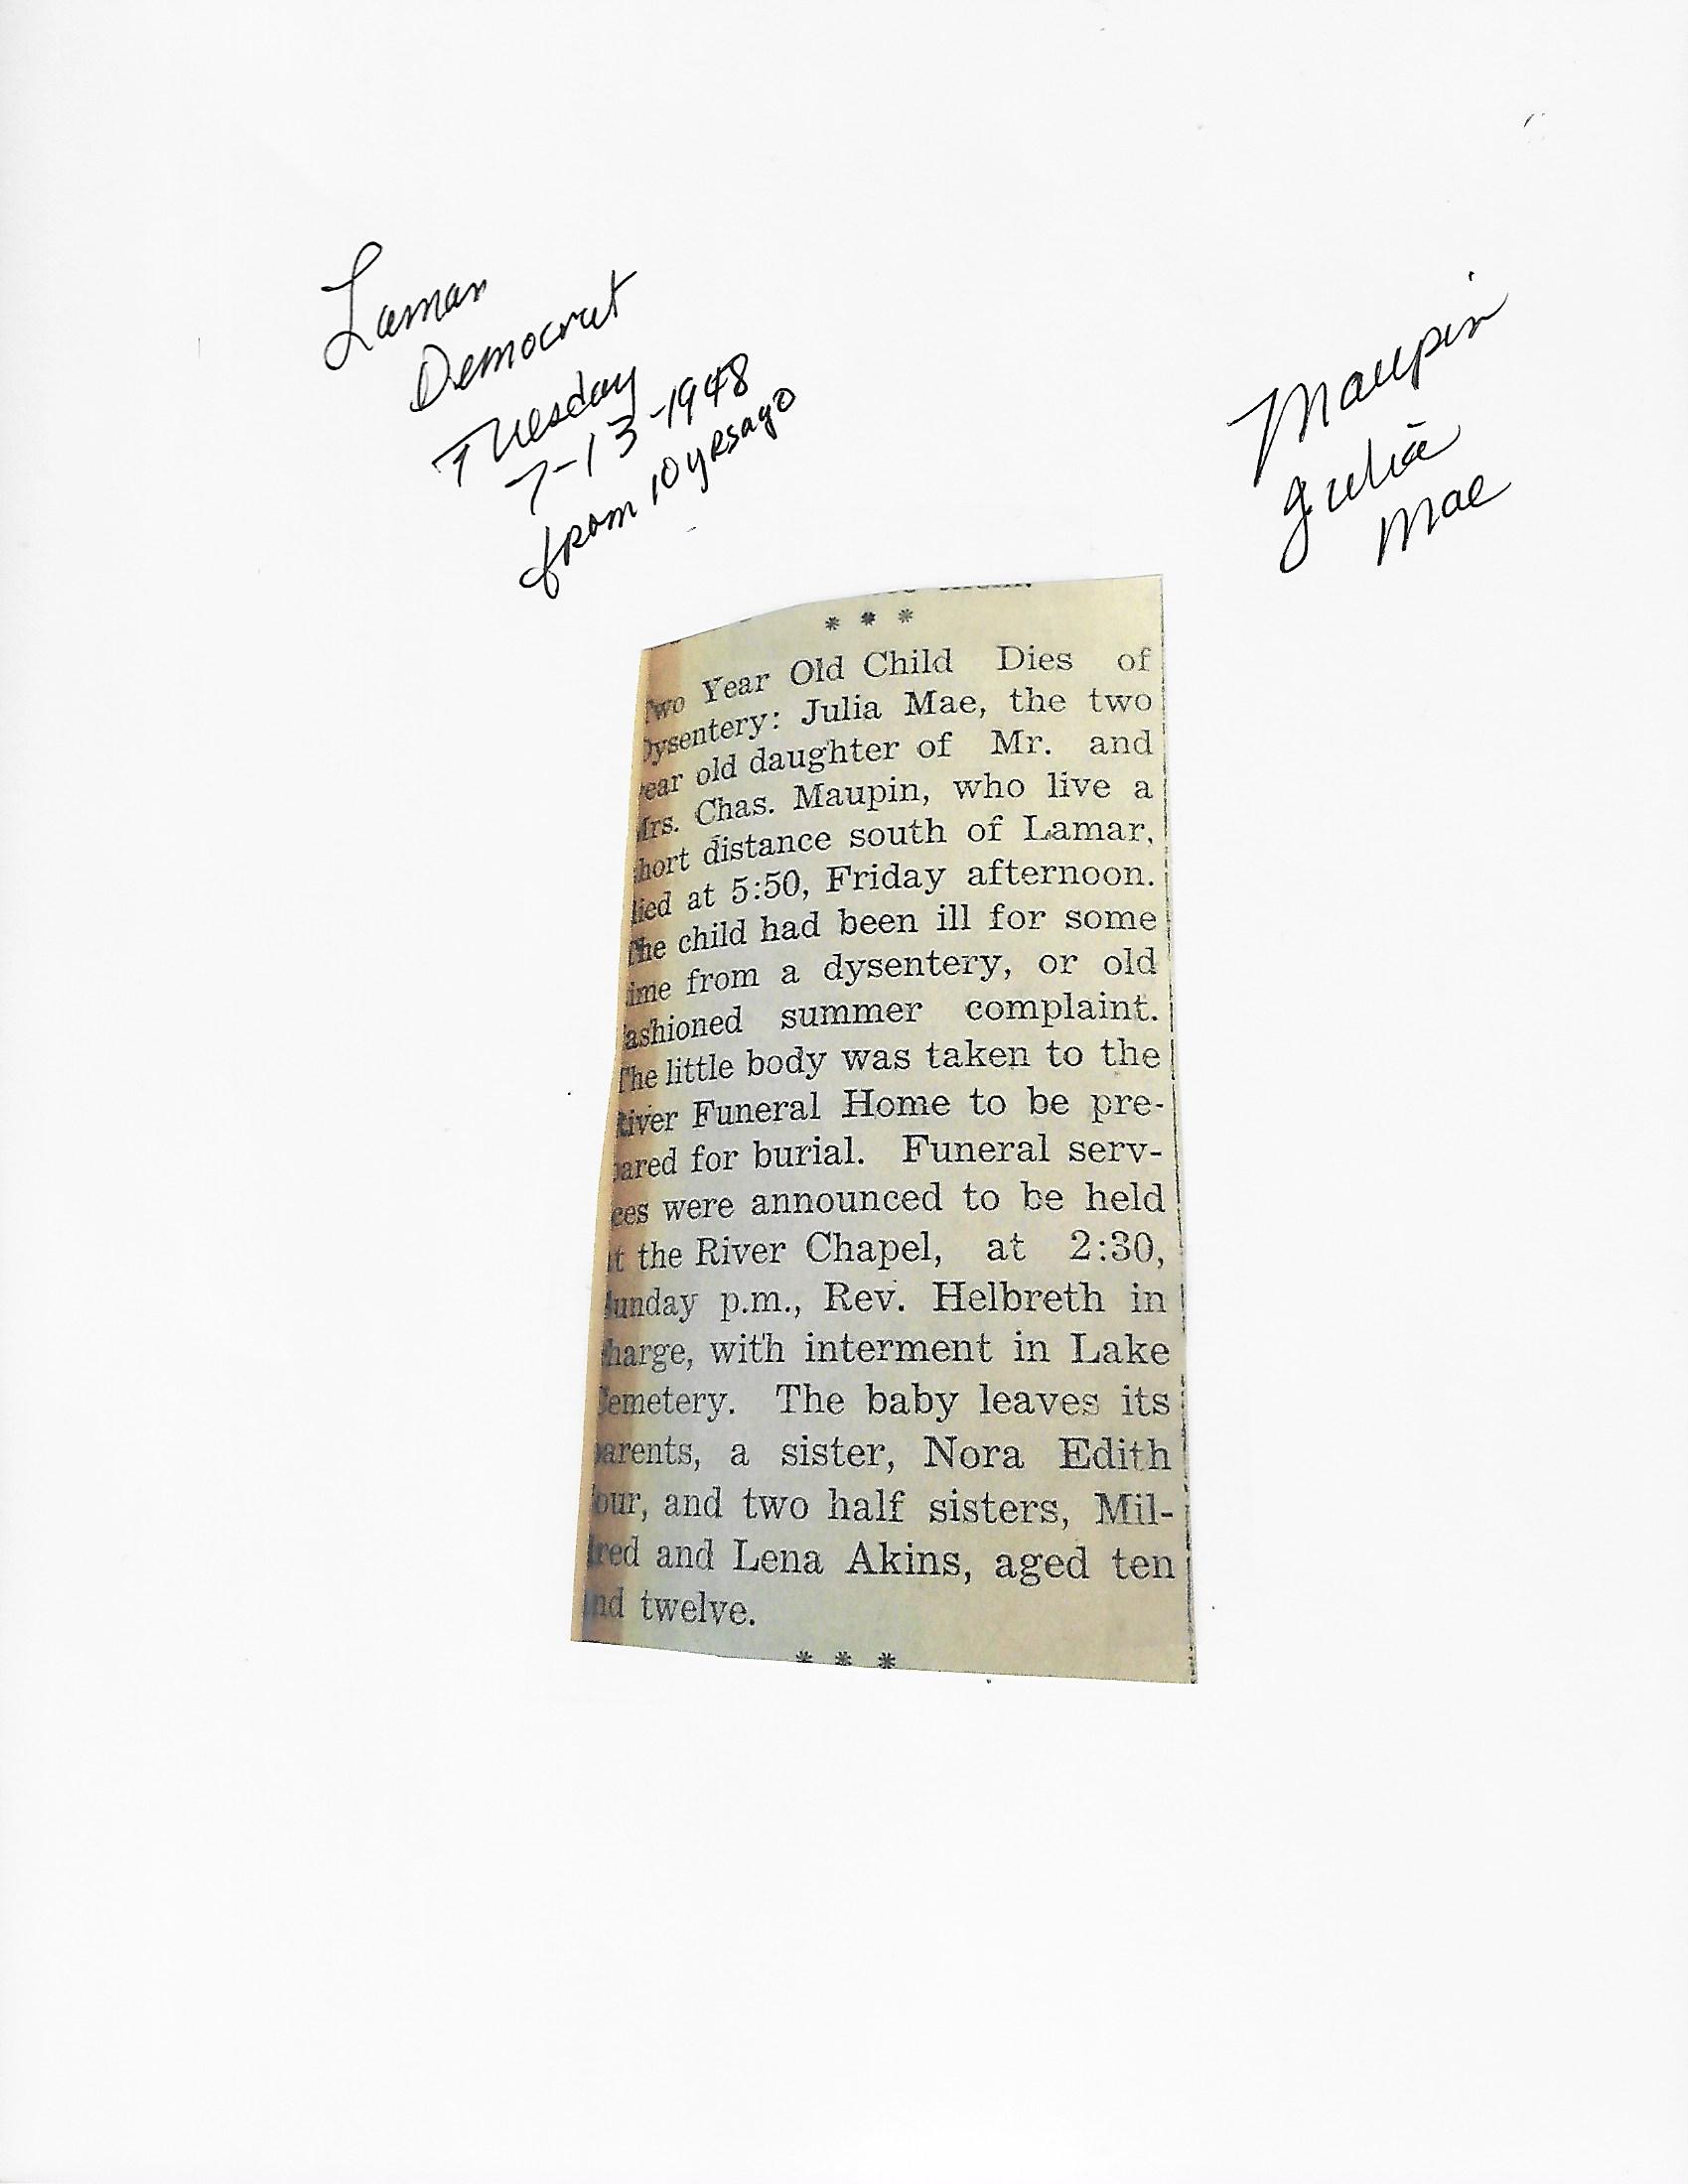 Lamar
Democrat
Tuesday
7-13-1948
from 10 yrs ago
Maupin
Julia
Mae
* * *
Two Year Old Child Dies of
Dysentery: Julia Mae, the two
year old daughter of Mr. and
Mrs. Chas. Maupin, who live a
short distance south of Lamar,
died at 5:50, Friday afternoon.
The child had been ill for some
time from a dysentery, or old
fashioned summer complaint.
The little body was taken to the
River Funeral Home to be pre-
pared for burial. Funeral serv-
ices were announced to be held
at the River Chapel, at 2:30,
Sunday p.m., Rev. Helbreth in
charge, with interment in Lake
Cemetery. The baby leaves its
parents, a sister, Nora Edith
four, and two half sisters, Mil-
dred and Lena Akins, aged ten
and twelve.
* * *